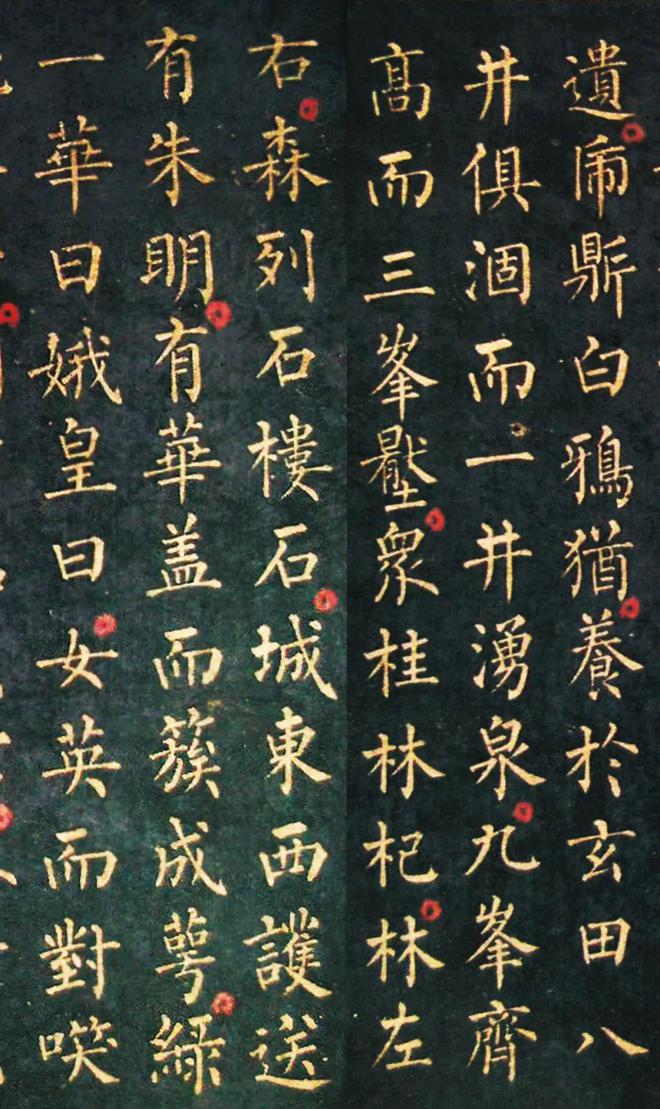 遺白鴉猶養於玄田八
井俱涸而一井湧泉九峯齊
髙而三峯衆桂林杞林左
右森列石樓石城東西護送
有朱明有華盖而簇成萼綠
一華曰娥皇曰女英而對㗛